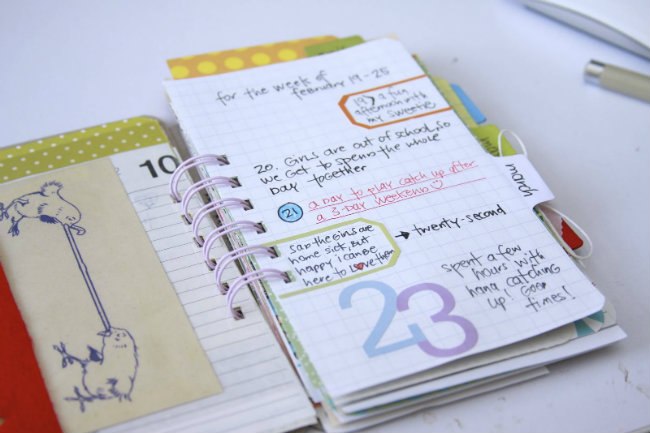 10
for the week of
february 19-25
19> a fun
afternoon with
my sweetie
20. Girls are out of school, so
we get to spend the whole
day together
21
a day to play catch up after
a 3-day weekend
sad the girls are
home sick, but
happy i can be
here to love them
twenty-second
23
spent a few
hours with
hana, catching
up! Good
times!